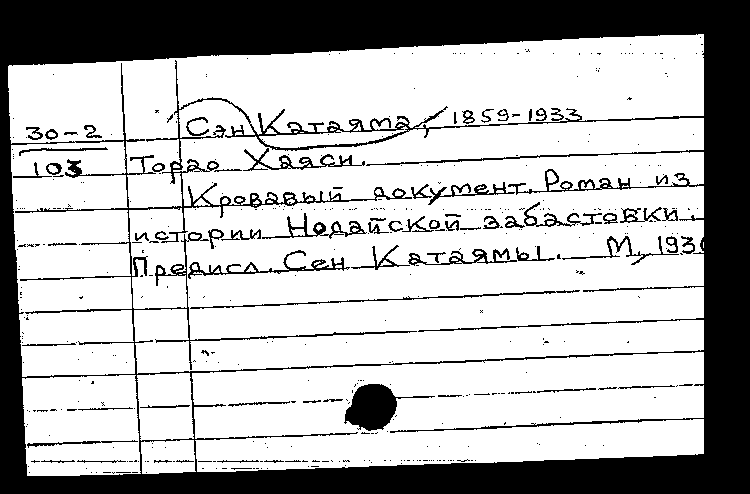 Сэн Катаяма, 1859-1933
30-2
103
Торао Хаяси.
Кровавый документ. Роман из
истории Нодайской забастовки.
Предисл. Сен Катаямы. М, 1930